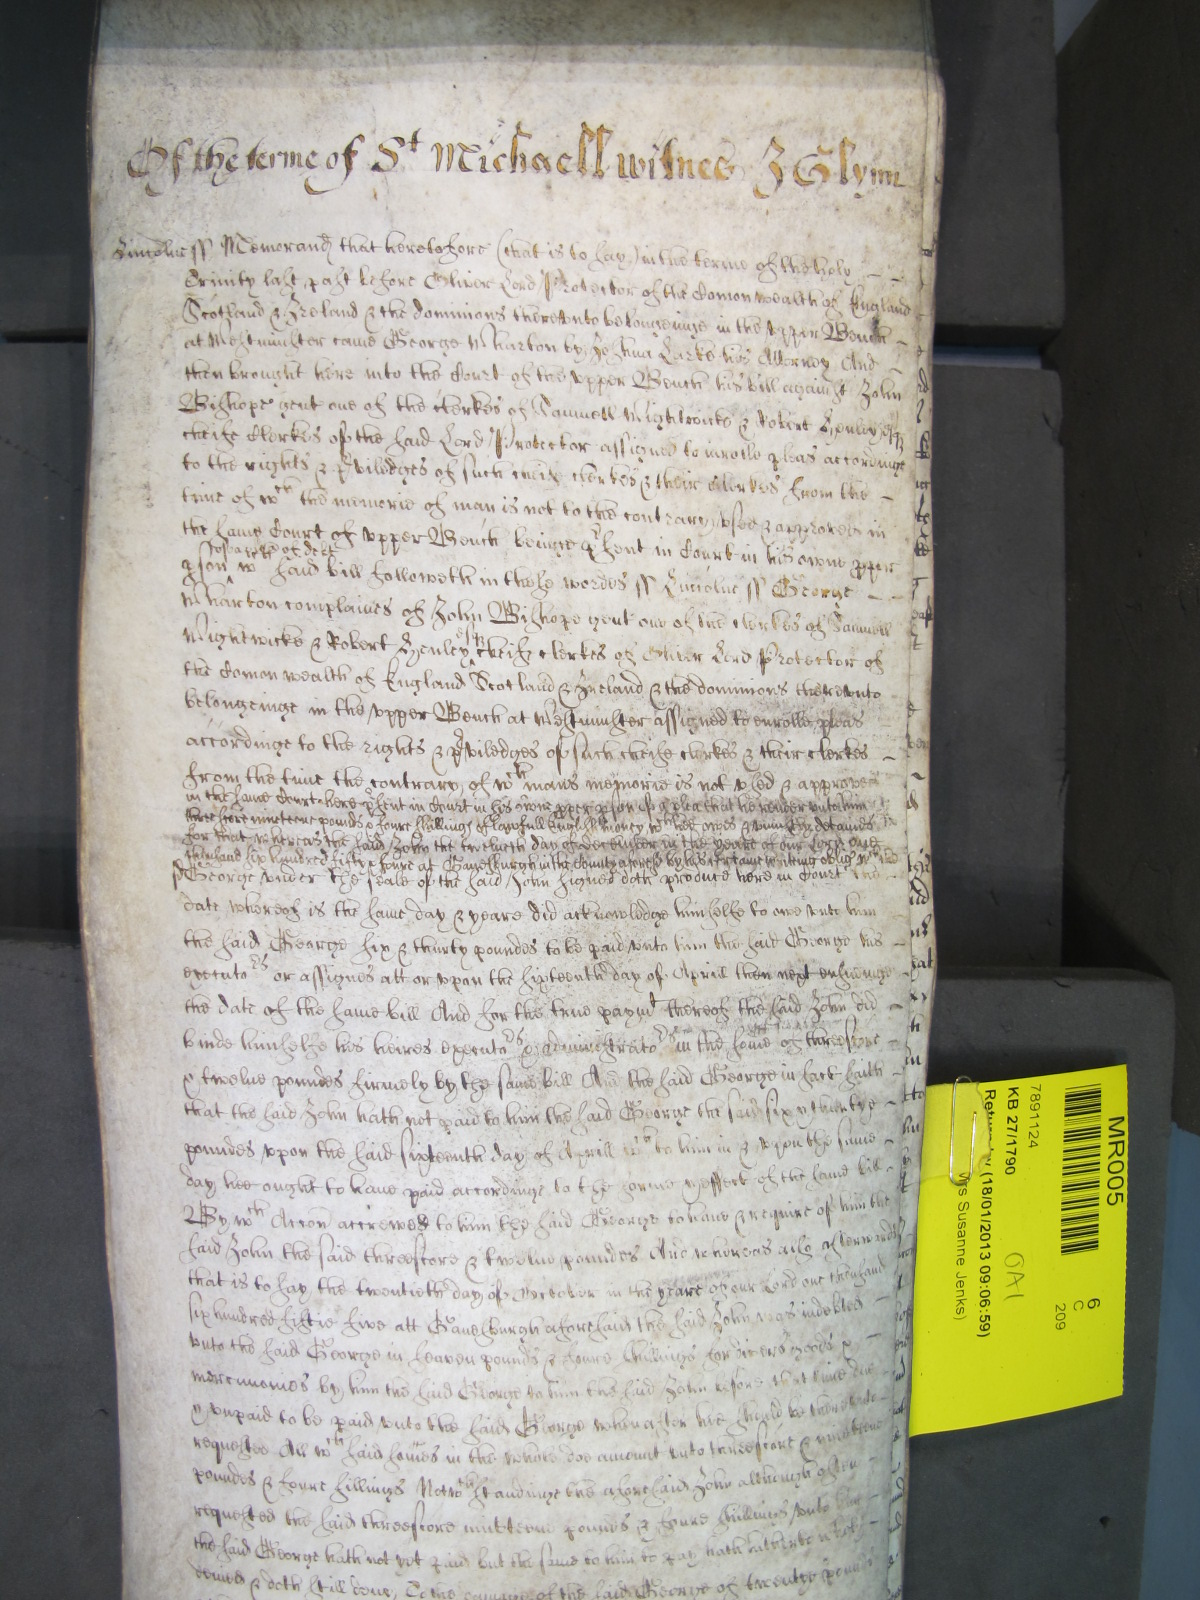 Of the terme of St Michaell witnes J Glynn
Lincolne ss Memorand that heretofore (that is to say) in the terme of the holy
Trinity last past before Oliver Lord Protector of the Comon wealth of England
Scotland & Ireland & the dominions thereunto belonginge in the upper Bench
at Westminster came George Wharton by his Attorney And
then brought here into the Court of the upper Bench his bill against John
Bishope gent one of the clerkes of Samuell Wightwicke & Robert Henley esqr
cheife Clerkes of the said Lord Protector assigned to inrolle pleas accordinge
to the rights & priviledges of such cheife clerkes & their clerkes from the
time of wch the memorie of man is not to the contrary used & approved in
the same Court of upper Bench beinge psent in Court in his owne pper
of a plea of debt
pson wch said bill followeth in these wordes ss Lincolne ss George
Wharton complaines of John Bishope gent one of the clerkes of Samuell
Wightwicke & Robert Henley esqr cheife clerkes of Oliver Lord Protector of
the Comon wealth of England Scotland & Ireland & the dominions thereunto
belonginge in the upper Bench at Westminster assigned to enrolle pleas
accordinge to the rights & priviledges of such cheife clerkes & their clerkes
from the time the contrary of wch mans memorie is not used & approved
in the same Court here psent in Court in his owne pper pson of a plea that he render unto him
threescore nineteene pounds & foure shillings of lawfull English money wch he owes & uniustly detaines
for that whereas the said John the twelveth day of December in the yeare of our Lord one
thousand six hundred fifty & foure at Gainesburgh in the County aforesd by his certaine writing oblig
George under the seale of the said John signed doth produce here in Court the
date whereof is the same day & yeare did acknowledge himselfe to owe unto him
the said George six & thirty poundes to be paid unto him the said George his
executors or assignes att or upon the sixteenth day of Aprill then next ensuinge
the date of the same bill And for the true paymt thereof the said John did
binde himselfe his heires executors & administrators in the some of threescore
& twelve poundes firmely by the same bill And the said George in fact saith
that the said John hath not paid to him the said George the said six & thirtye
poundes upon the said sixteenth day of Aprill wch to him in & upon the same
day hee ought to have paid accordinge to the forme & effect of the same bill
By wch Accon accrewed to him the said George to have & require of him the
said John the said threescore & twelve poundes And whereas also afterwards
that is to say the twentieth day of October in the yeare of our Lord one thousand
six hundred fiftie five att Gainesburgh aforesaid the said John was indebted
unto the said George in seaven pounds & foure shillings for divers goods &
by him the said George to him the said John before that time
& unpaid to be paid unto the said George when after hee should be thereunto
requested All wch said somes in the whole doe amount unto threescore & nineteene
poundes & foure shillings Notwthstandinge the aforesaid John although often
requested the said threescore nineteene pounds & foure shillings unto him
the said George hath not yet paid but the same to him to pay hath hitherto
denied & doth still deny To the damage of the said George of twenty pounds
MR005
6
C
209
7891124
KB 27/1790
OA1
(18/01/2013 09:06:59)
Susanne Jenks)